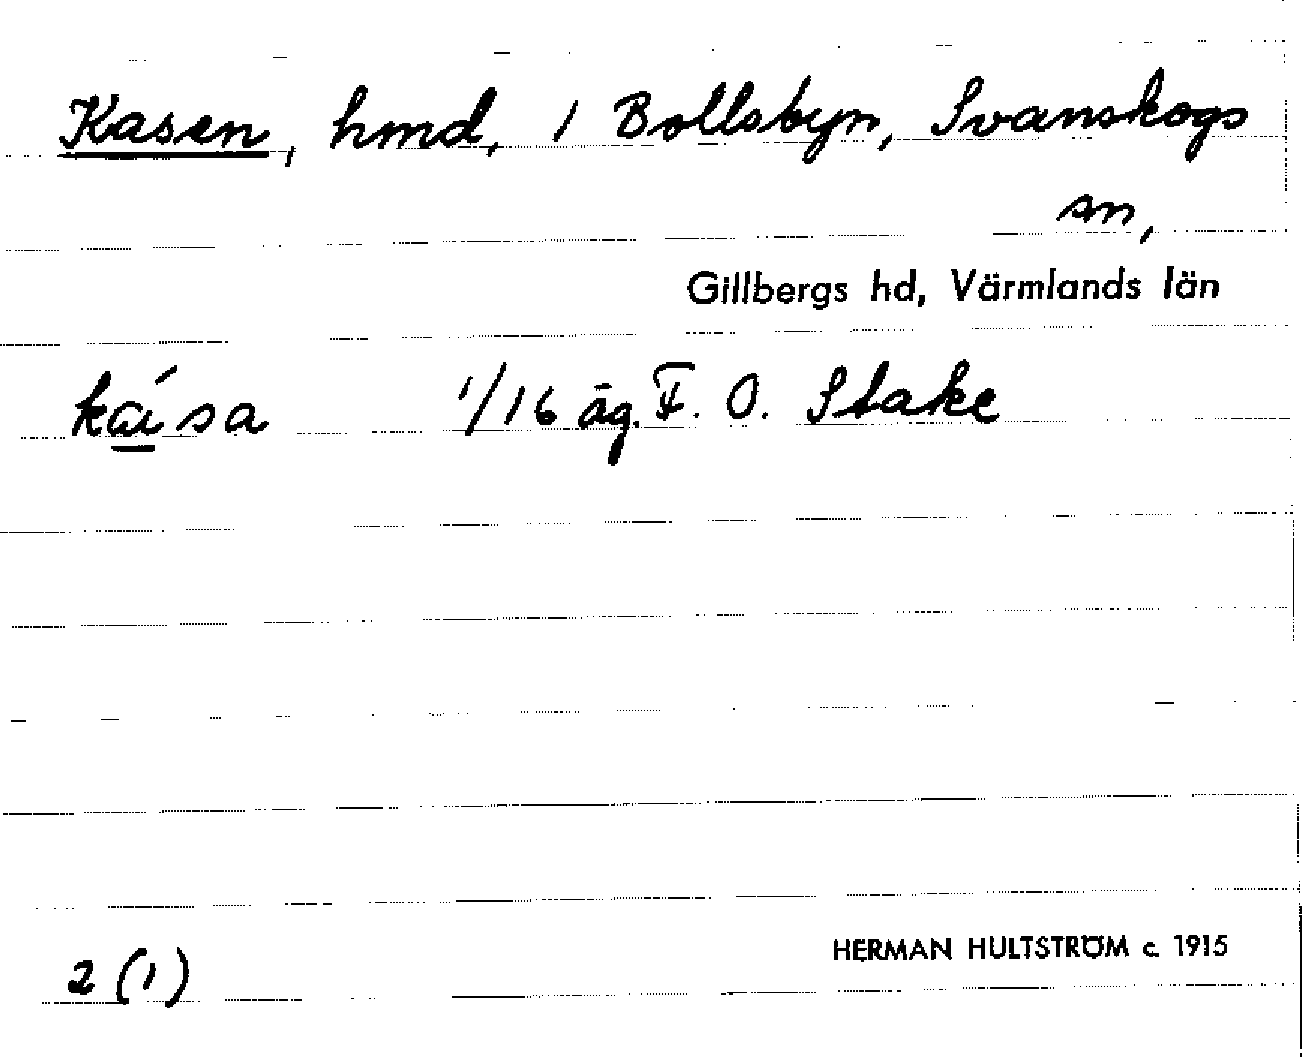 Kasen, hmd, 1 Bollsbyn, Svanskogs
sn,
Gillbergs hd, Värmlands län
ka̱í sa 1/16 äg. F. O. Stake
2 (1)
HERMAN HULTSTRÖM c. 1915